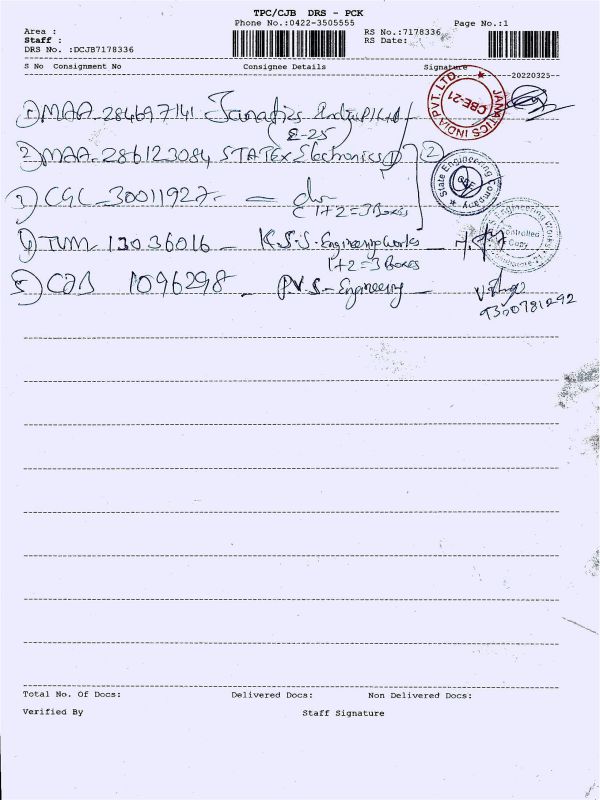 TPC/CJB DRS - PCK
Phone No.:0422-3505555 Page No.:1
Area : RS No.:7178336
Staff : RS Date:
DRS No. :DCJB7178336
S No Consignment No Consignee Details Signature
20220325
1) MAA-284697141 Janatics India P Ltd
(E-25)
2) MAA-286123084 STATEX Electronics 1 2
3) CGL-30011927 -
1+2=3 Boxes
4) TUM-13036016 - K.S.S-Engineering Works -
1+2=3 Boxes
5) CJB 1096298 - P.V.S-Engineering -
JANATICS INDIA PVT. LTD.
CBE-21
State Engineering Company
Engineering Works
Controlled
Copy
Total No. Of Docs: Delivered Docs: Non Delivered Docs:
Verified By Staff Signature